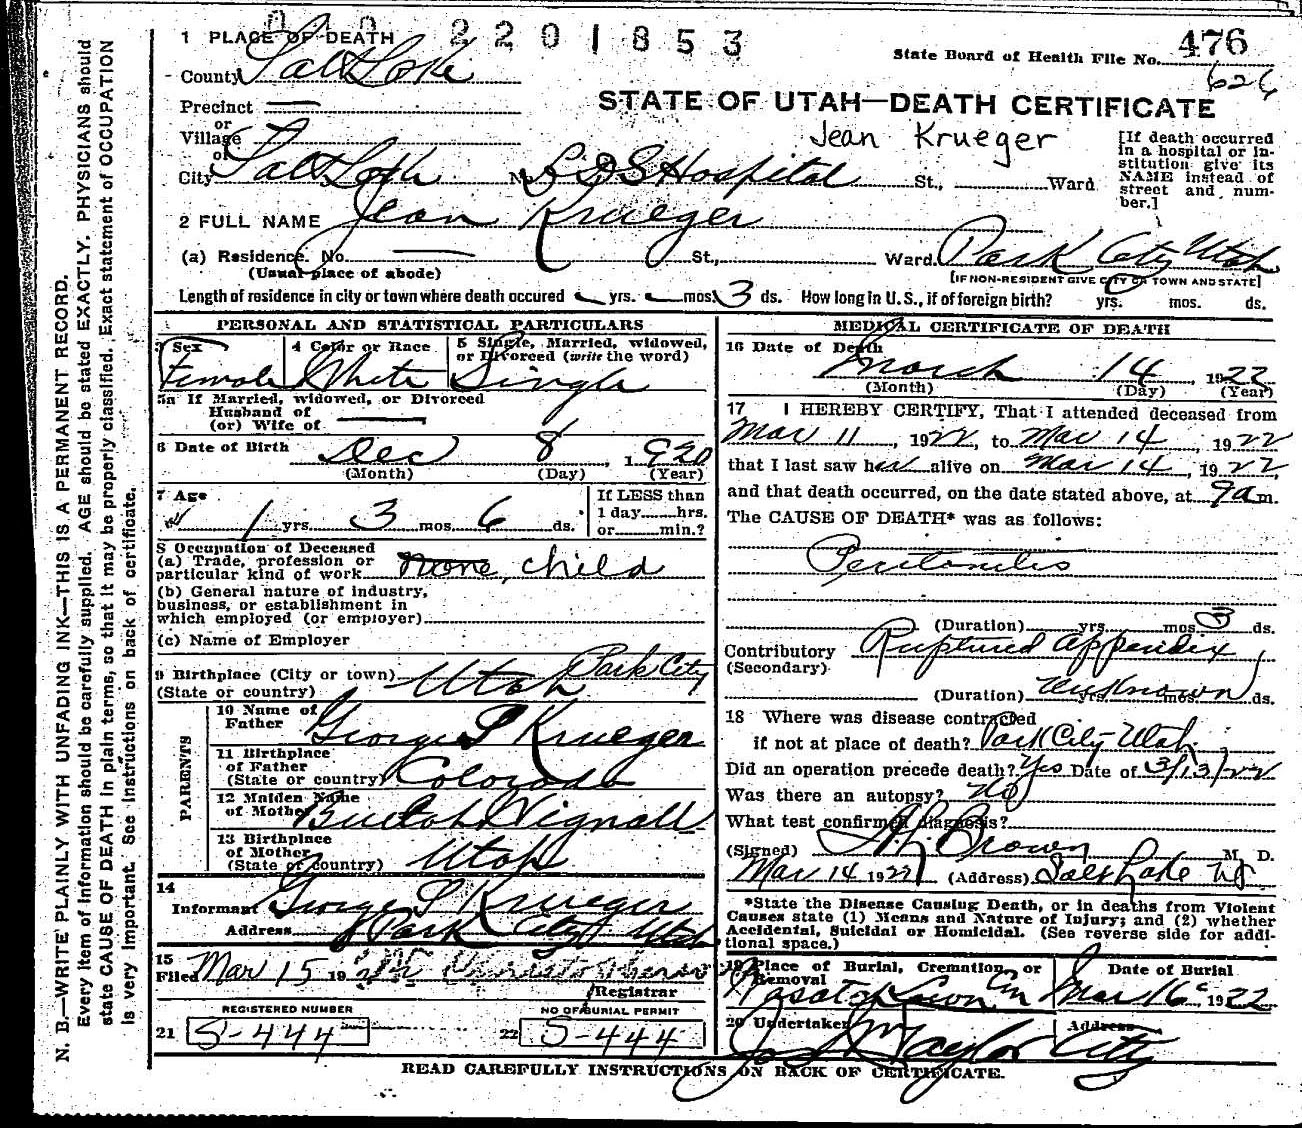 2201853
1 PLACE OF DEATH
State Board of Health File No. 476
County Salt Lake
626
Precinct —
STATE OF UTAH—DEATH CERTIFICATE
or
Village
Jean Krueger
[If death occurred in a hospital or institution give its NAME instead of street and number.]
or
City Salt Lake No. L D S Hospital St., Ward
2 FULL NAME Jean Krueger
(a) Residence. No. — St., Ward. Park City Utah
(Usual place of abode) [IF NON-RESIDENT GIVE CITY OR TOWN AND STATE]
Length of residence in city or town where death occured — yrs. — mos. 3 ds. How long in U.S., if of foreign birth? yrs. mos. ds.
PERSONAL AND STATISTICAL PARTICULARS
3 Sex Female
4 Color or Race White
5 Single, Married, widowed, or Divorced (write the word) Single
5a If Married, widowed, or Divorced
Husband of
(or) Wife of —
6 Date of Birth Dec 8, 1920
(Month) (Day) (Year)
7 Age 1 yrs. 3 mos. 6 ds.
If LESS than
1 day hrs.
or min.?
8 Occupation of Deceased
(a) Trade, profession or
particular kind of work none, child
(b) General nature of industry,
business, or establishment in
which employed (or employer)
(c) Name of Employer
9 Birthplace (City or town) Park City
(State or country) Utah
PARENTS
10 Name of
Father George S Krueger
11 Birthplace
of Father
(State or country) Colorado
12 Maiden Name
of Mother Vignall
13 Birthplace
of Mother
(State or country) Utah
14
Informant George S Krueger
Address Park City Utah
15
Filed Mar 15 19
Registrar
REGISTERED NUMBER
21 S-444
NO OF BURIAL PERMIT
22 S-444
MEDICAL CERTIFICATE OF DEATH
16 Date of Death
March 14, 1922
(Month) (Day) (Year)
17 I HEREBY CERTIFY, That I attended deceased from
Mar 11, 1922, to Mar 14, 1922
that I last saw her alive on Mar 14, 1922,
and that death occurred, on the date stated above, at 9 a m.
The CAUSE OF DEATH* was as follows:
Peritonitis
(Duration) yrs. mos. 3 ds.
Contributory Ruptured appendix
(Secondary)
(Duration) Unknown yrs. mos. ds.
18 Where was disease contracted
if not at place of death? Park City Utah
Did an operation precede death? Yes Date of 3/13/22
Was there an autopsy? No
What test confirmed diagnosis?
(Signed) Brown M. D.
Mar 14 1922 (Address) Salt Lake
*State the Disease Causing Death, or in deaths from Violent
Causes state (1) Means and Nature of Injury; and (2) whether
Accidental, Suicidal or Homicidal. (See reverse side for addi-
tional space.)
19 Place of Burial, Cremation, or
Removal
Wasatch Lawn Cem
Date of Burial
Mar 16 1922
20 Undertaker
Taylor
Address
City
READ CAREFULLY INSTRUCTIONS ON BACK OF CERTIFICATE.
N. B.—WRITE PLAINLY WITH UNFADING INK—THIS IS A PERMANENT RECORD.
Every item of information should be carefully supplied. AGE should be stated EXACTLY. PHYSICIANS should
state CAUSE OF DEATH in plain terms, so that it may be properly classified. Exact statement of OCCUPATION
is very important. See instructions on back of certificate.